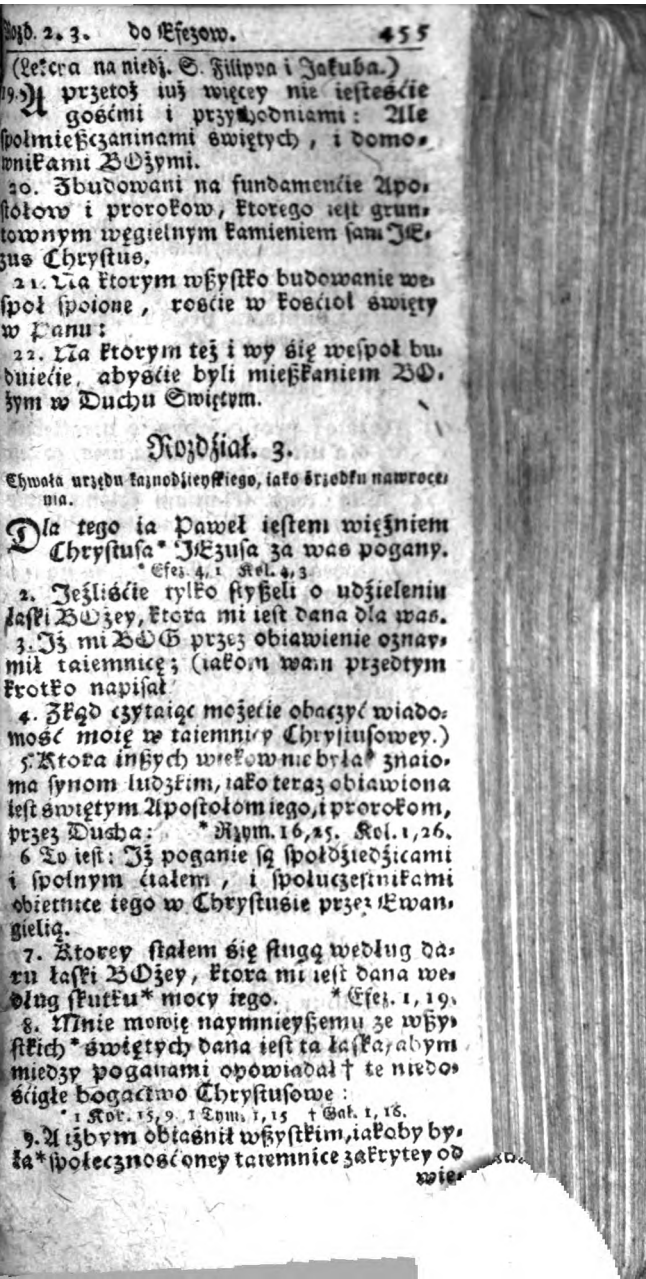 Rozd. 2. 3. do Efezow. 455
(Lekcya na niedz. S. Filippa i Jakuba.)
19. A przetoż iuż więcey nie iesteście
gośćmi i przychodniami: Ale
społmießczaninami świętych, i domo-
wnikami BOżymi.
20. Zbudowani na fundamenćie Apo-
stołow i prorokow, ktorego iest grun-
townym węgielnym kamieniem sam JE-
zus Chrystus.
21. Na ktorym wßystko budowanie we-
społ spoione, rośćie w kośćioł święty
w Panu:
22. Na ktorym też i wy się wespoł bu-
duiećie, abyśćie byli mießkaniem BO-
żym w Duchu Swiętym.
Rozdźiał. 3.
Chwała urzędu kaznodźieyskiego, iako śrzodku nawroce-
nia.
Dla tego ia Paweł iestem więźniem
Chrystusa* JEzusa za was pogany.
* Efez. 4, 1 Kol. 4, 3
2. Jeżliśćie tylko słyßeli o udźieleniu
łaski BOżey, ktora mi iest dana dla was.
3. Jż mi BOG przez obiawienie oznay-
mił taiemnicę; (iakom wam przedtym
krotko napisał
4. Zkąd czytaiąc możećie obaczyć wiado-
mość moię w taiemnicy Chrystusowey.)
5. Ktora inßych wiekow nie była* znaio-
ma synom ludzkim, iako teraz obiawiona
iest świętym Apostołom iego, i prorokom,
przez Ducha: * Rzym. 16, 25. Kol. 1, 26.
6 To iest: Jż poganie są społdźiedźicami
i spolnym ćiałem, i społuczestnikami
obietnice iego w Chrystusie przez Ewan-
gielią.
7. Ktorey stałem się sługą według da-
ru łaski BOżey, ktora mi iest dana we-
dług skutku* mocy iego. * Efez. 1, 19.
8. Mnie mowię naymnieyßemu ze wßy-
stkich* świętych dana iest ta łaska, abym
miedzy poganami opowiadał † te niedo-
śćigłe bogactwo Chrystusowe:
* 1 Kor. 15, 9. 1 Tym. 1, 15 † Gal. 1, 16.
9. A iżbym obiaśnił wßystkim, iakoby by-
ła* społeczność oney taiemnice zakrytey od
wie-